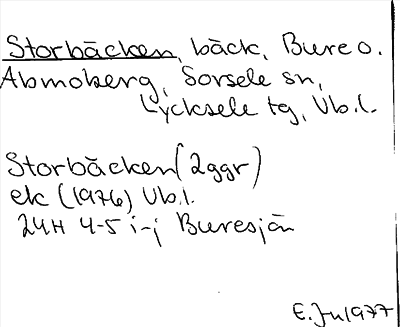 Storbäcken, bäck, Bure o.
Abmoberg, Sorsele sn,
Lycksele tg, Vb.l.
Storbäcken (2ggr)
ek (1976) Vb.l.
24H 4-5 i-j Buresjön
E.Ju 1977